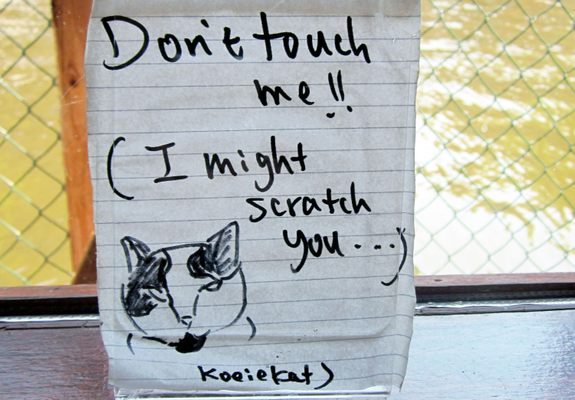 Don't touch
me!!
(I might
scratch
you...)
Koeiekat)